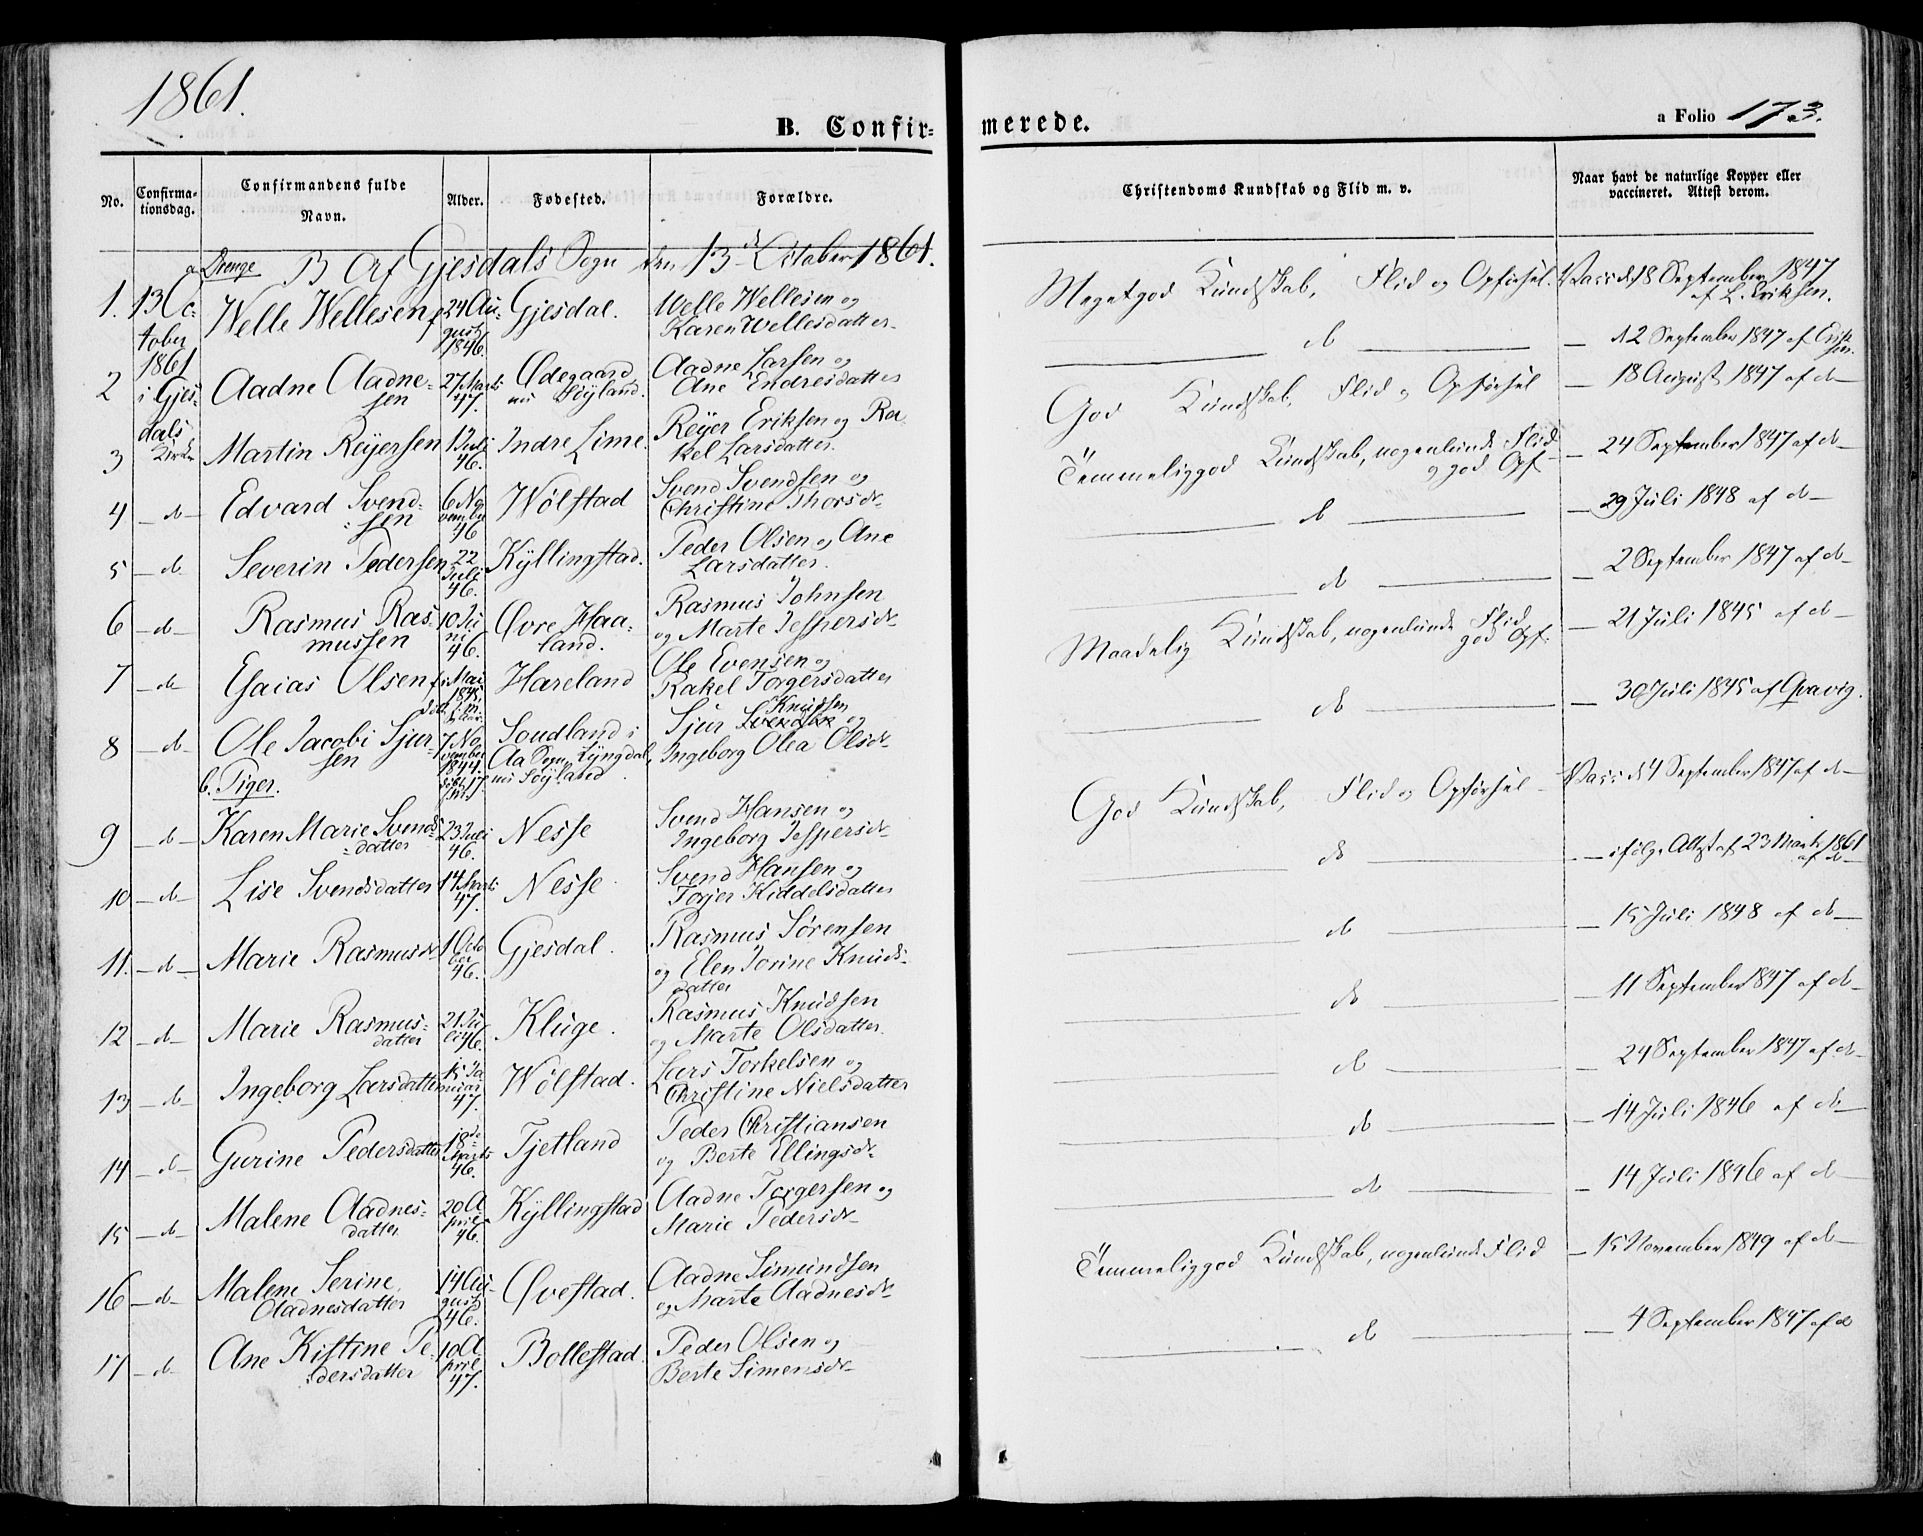 1861.
B. Confir=
merede.
a Folio 173.
No.
Confirma-
tionsdag.
Confirmandens fulde
Navn.
Alder.
Fødested.
Forældre.
Christendoms Kundskab og Flid m. v.
Naar havt de naturlige Kopper eller
vaccineret. Attest derom.
a Drenge B Af Gjesdals Sogn den 13 October 1861.
1. 13 Oc=
tober
1861
i Gjes=
dals
Kirke
Welle Wellesen
24 Au=
gust
1846.
Gjesdal.
Welle Wellesen og
Karen Wellesdatter
Megetgod Kundskab, Flid og Opførsel.
Vacc d 18 September 1847
af L. Eriksen.
2 Aadne Aadne=
sen
27 Marts
47.
Ødegaard
nu Søyland.
Aadne Larsen og
Ane Endresdatter
do
12 September 1847 af Erik
sen.
3 Martin Reyersen
1 Juli
46.
Indre Lime.
Reyer Eriksen og Ra
kel Larsdatter.
God Kundskab, Flid og Opførsel
18 August 1847 af do
4 do Edvard Svend=
sen
6 No
vember
46
Wølstad
Svend Svendsen og
Christine Thorsdr
Temmeliggod Kundskab, nogenlunde Flid
og god Opf.
24 September 1847 af do
5 do Severin Pedersen
22
Juli
46.
Kyllingstad.
Peder Olsen og Ane
Larsdatter.
do
29 Juli 1848 af do
6 do Rasmus Ras=
mussen
10 Ju
ni
46.
Øvre Haa=
land.
Rasmus Johnsen
og Marte Jespersdr
do
2 September 1847 af do
7 do Esaias Olsen
Mai
1845
Hareland
Ole Evensen og
Rakel Torgersdatter
Maadelig Kundskab, nogenlunde Flid
god Opf.
21 Juli 1845 af do
8 do Ole Jacobi Sjur=
sen
7 No
vember
1844.
Soudland i
Aa Sogn Lyngdal,
nu Søyland
Knudsen
Sjur Svendsen og
Ingeborg Olea Olsdr
do
30 Juli 1845 af Gravig.
b. Piger.
9 do Karen Marie Svends
datter
23 Juli
46.
Nesse
Svend Hansen og
Ingeborg Jespersdr
God Kundskab, Flid og Opførsel
Vacc d 4 September 1847 af do
10 do Lise Svendsdatter
14 Marts
47.
Nesse
Svend Hansen og
Torjer Kiddelsdatter
do
ifølge Attest af 23 Marts 1861
af do
11. do Marie Rasmusdr
1 Octo
ber
46.
Gjesdal.
Rasmus Sørensen
og Elen Jorine Knuds=
datter
do
15 Juli 1848 af do
12 do Marie Rasmus=
datter
21 Ju
li 46.
Kluge.
Rasmus Knudsen
og Marte Olsdatter.
do
11 September 1847 af do
13 do Ingeborg Larsdatter
15 Ja
nuar
47.
Wølstad.
Lars Torkelsen og
Christine Nielsdatter
do
24 September 1847 af do
14 do Gurine Pedersdatter
18de
Marts
46.
Tjetland
Peder Christiansen
og Berte Ellingsdr
do
14 Juli 1846 af do
15 do Malene Aadnes=
datter
20 A
pril
46.
Kyllingstad
Aadne Torgersen og
Marie Pedersdr
do
14 Juli 1846 af do
16 do Malene Serine
Aadnesdatter
14 Au=
gust
46.
Øvestad.
Aadne Simundsen
og Marte Aadnesdr
Temmeliggod Kundskab, nogenlunde Flid
15 November 1849 af do
17 do Ane Kistine Pe=
dersdatter
10 A
pril
47.
Bollestad.
Peder Olsen og
Berte Simensdr
do
4 September 1847 af do